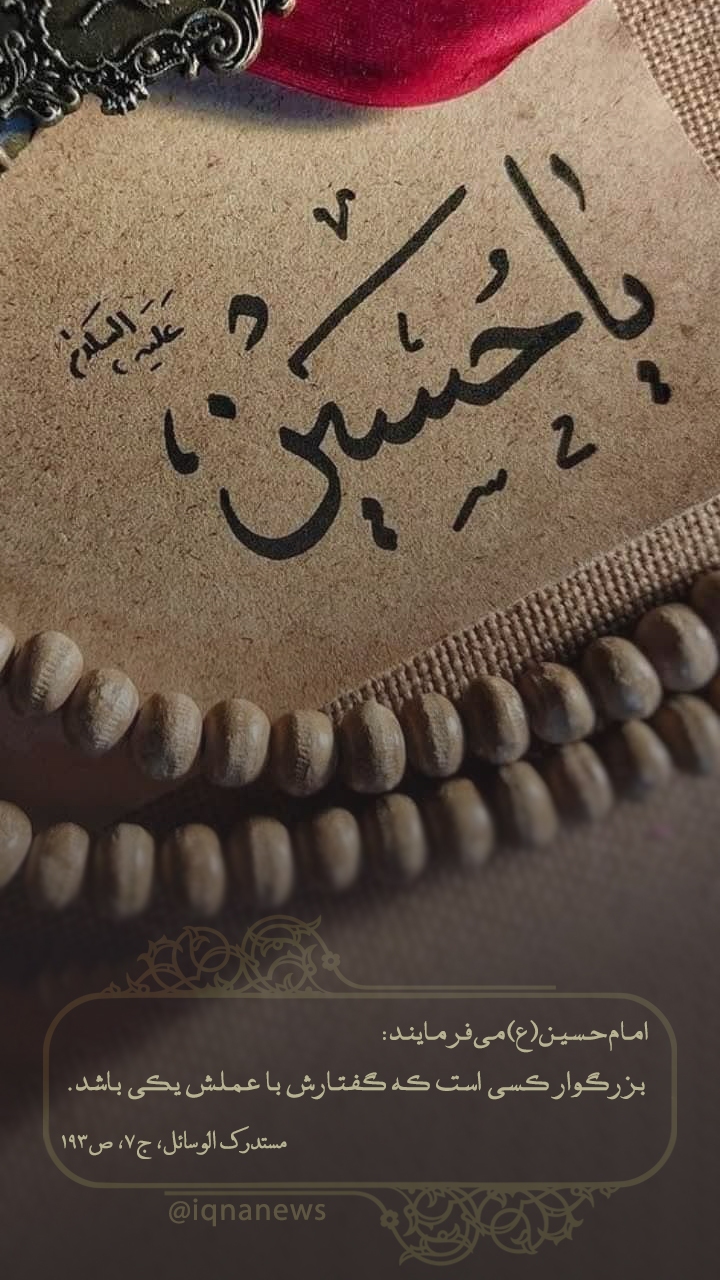 یا حُسَین
عَلَیهِ السَّلام
امام‌حسین(ع)می‌فرمایند:
بزرگوار کسی است که گفتارش با عملش یکی باشد.
مستدرک الوسائل، ج۷، ص۱۹۳
@iqnanews